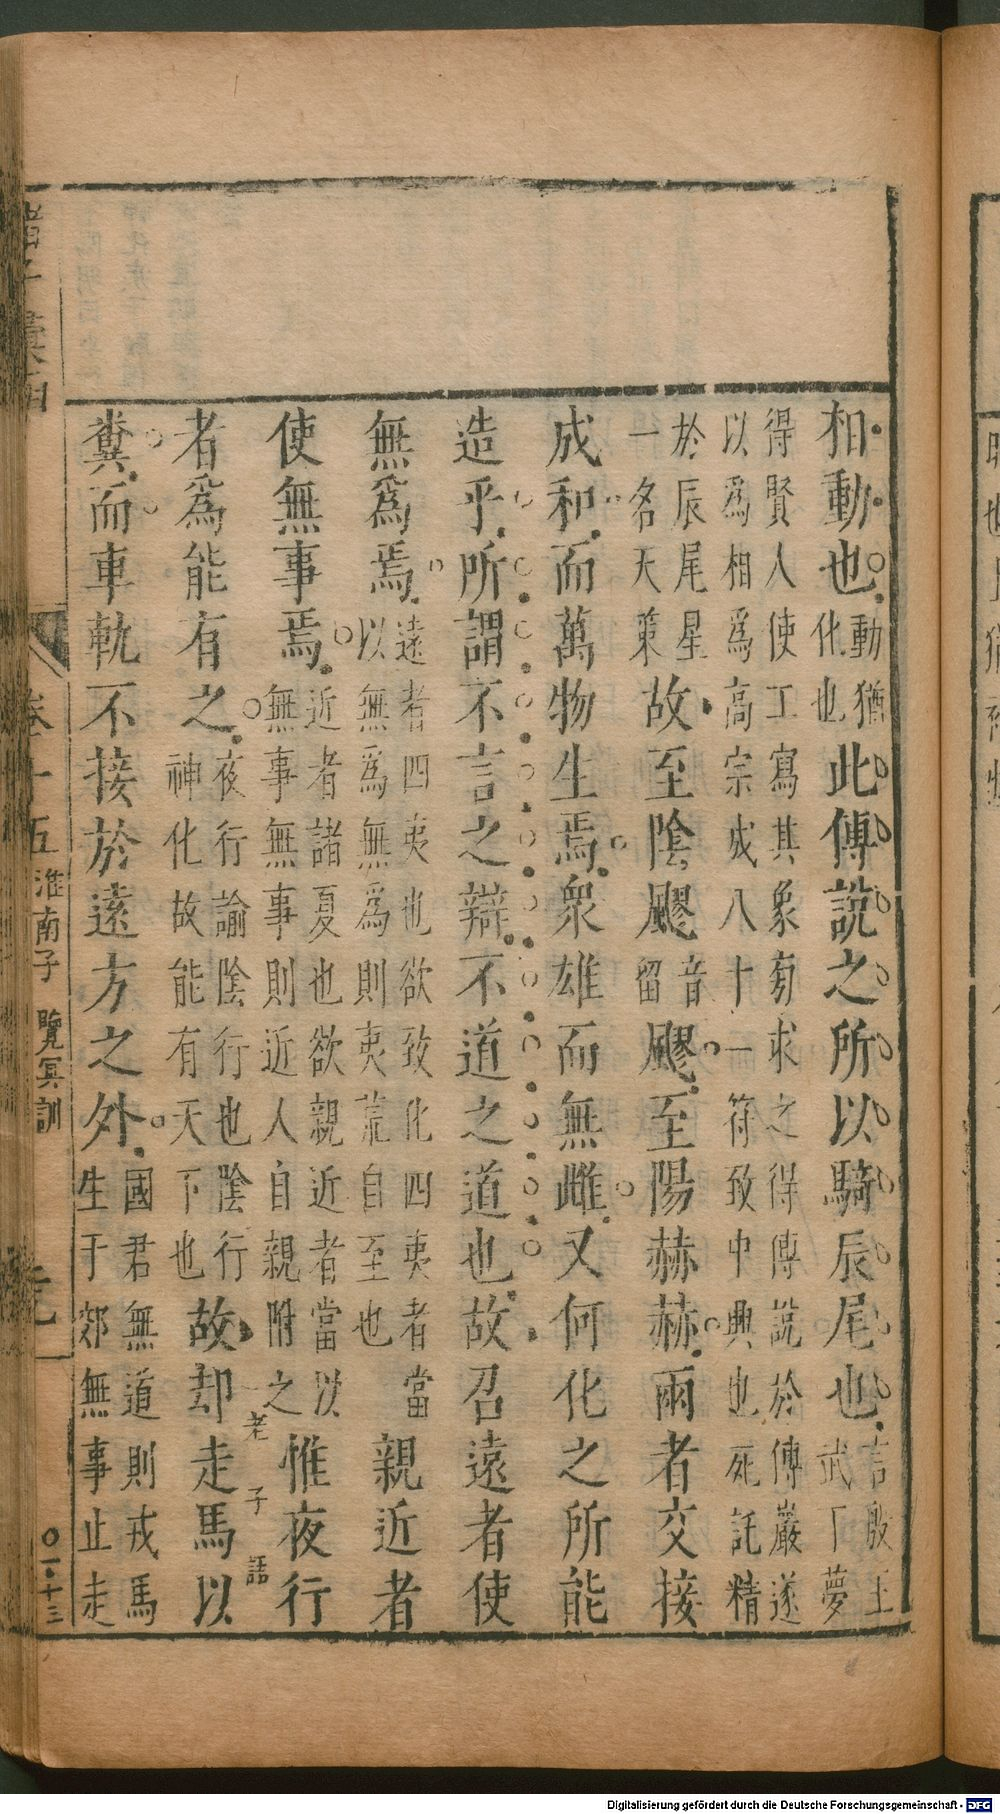 相動也動猶化也此傅說之所以騎辰尾也言殷王武丁夢
得賢人使工寫其象旁求之得傅說於傅巖遂
以爲相爲高宗成八十一符致中興也死託精
於辰尾星一名天策故至陰飂音留飂至陽赫赫兩者交接
成和而萬物生焉衆雄而無雌又何化之所能
造乎所謂不言之辯不道之道也故召遠者使
無爲焉遠者四夷也欲致化四夷者當以無爲無爲則夷荒自至也親近者
使無事焉近者諸夏也欲親近者當以無事無事則近人自親附之惟夜行
者爲能有之夜行諭陰行也陰行神化故能有天下也故却走馬以
老子語
糞而車軌不接於遠方之外國君無道則戎馬生于郊無事止走
諸子彙函 卷十五 淮南子 覽冥訓
Digitalisierung gefördert durch die Deutsche Forschungsgemeinschaft - DFG